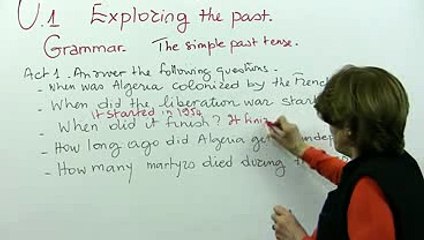 U.1 Exploring the past.
Grammar. The simple past tense.
Act 1. Answer the following questions.
- When was Algeria colonized by the French
- When did the liberation war start
it started in 1954
- When did it finish? It fini
- How long ago did Algeria get indep
- How many martyrs died during the